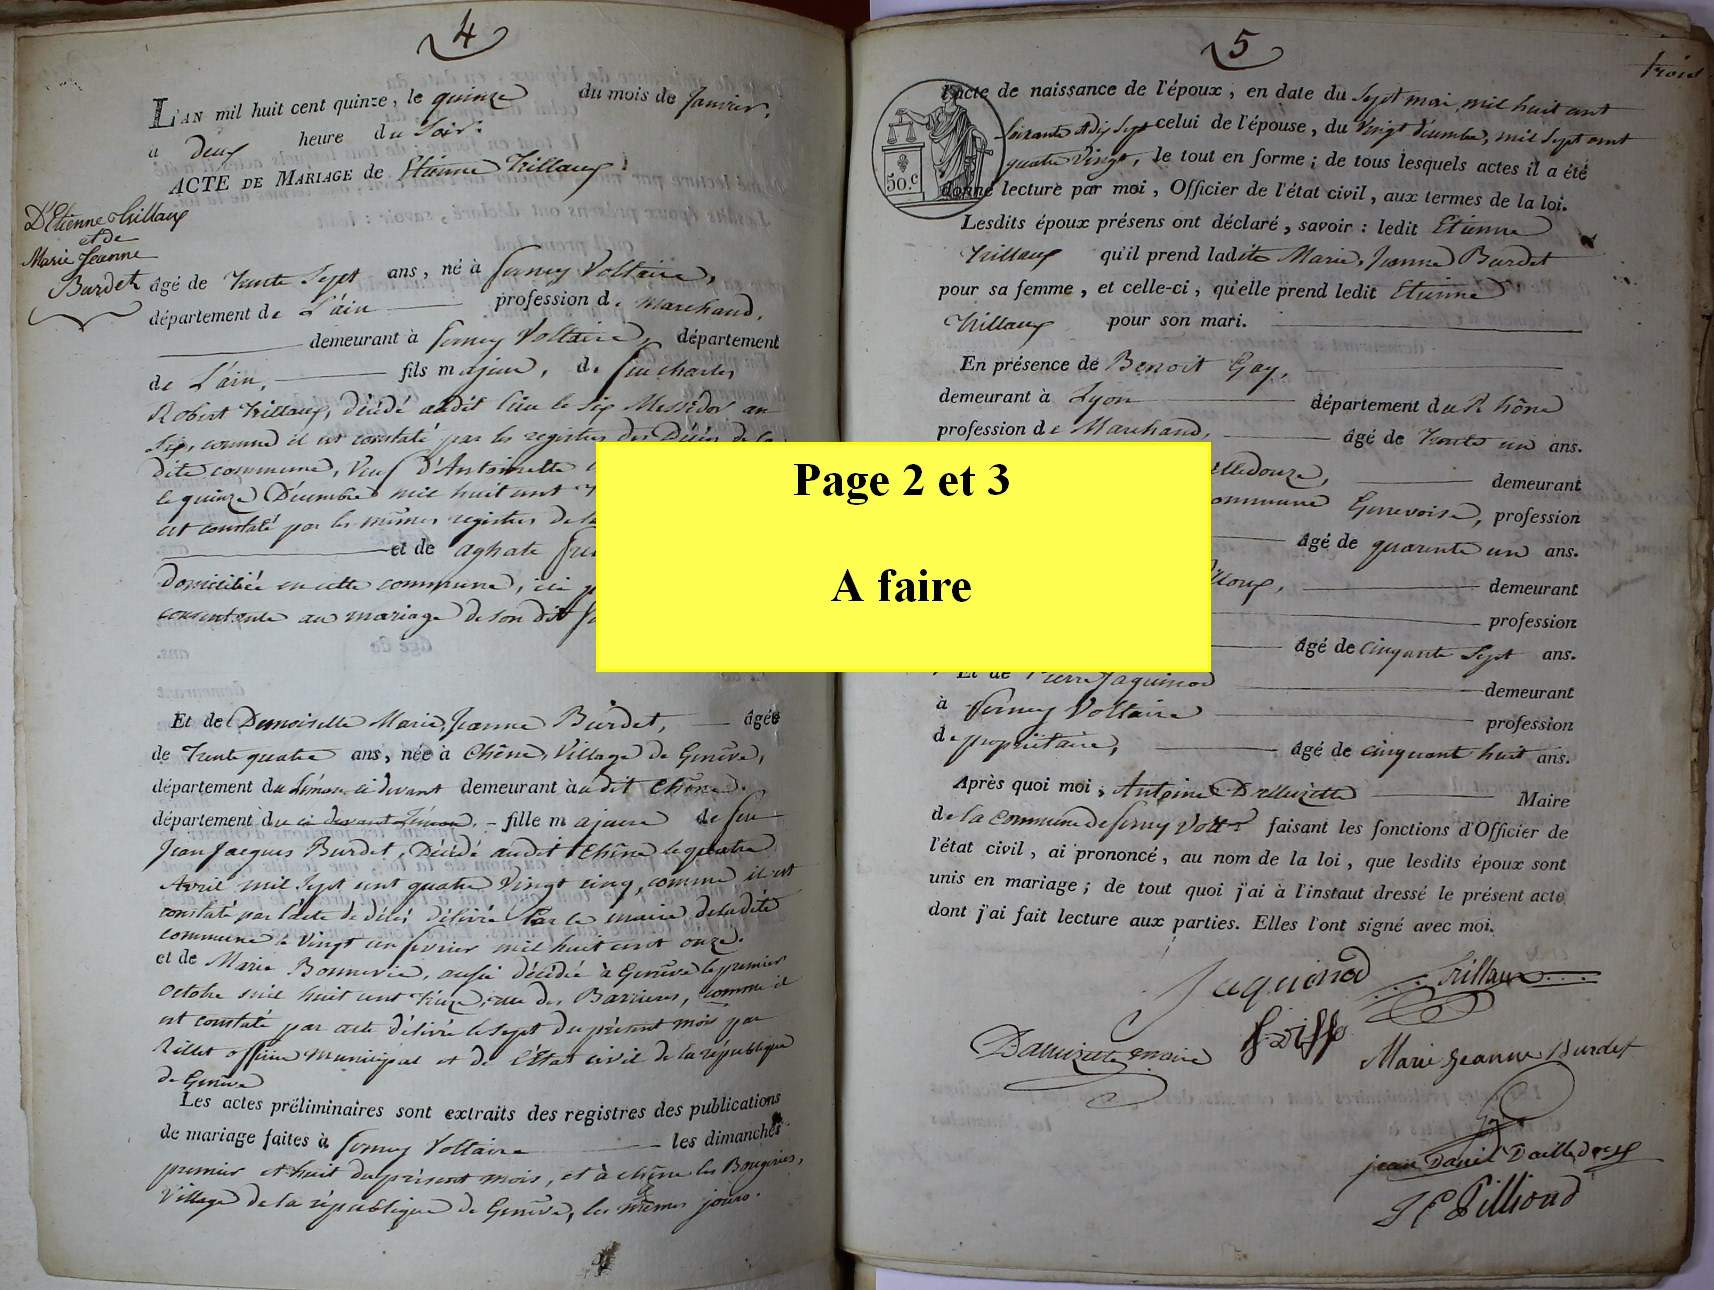 4
L'AN mil huit cent quinze, le quinze du mois de Janvier,
à deux heure du Soir.
ACTE DE MARIAGE de Etienne Trillaux
D'Etienne Trillaux
et de
Marie Jeanne
Burdet
âgé de trente Sept ans, né à ferney Voltaire,
département de L'ain profession de Marchand,
demeurant à ferney Voltaire, département
de L'ain, fils majeur, de feu Charles
Robert Trillaux, décédé audit lieu le six Messidor an
Six, comme il est constaté par les registres des Décès de la
dite commune, Veuf d'Antoinette
le quinze Décembre mil huit cent
est constaté par les mêmes registres de la
et de aghate
domiciliée en cette commune, ici
consentante au mariage de son dit
Et de Demoiselle Marie, Jeanne Burdet, âgée
de trente quatre ans, née à Chêne, Village de Genève,
département du Léman ci devant demeurant à audit Chêne.
département du ci devant Léman, - fille majeure de feu
Jean Jacques Burdet, Décédé audit Chêne le quatre
Avril mil Sept cent quatre Vingt cinq, comme il est
constaté par l'acte de décès délivré Par le maire de ladite
commune le Vingt un fevrier mil huit cent onze.
et de Marie Bonnevie, aussi décédée à Genève le premier
octobre mil huit cent treize, rue des Barrieres, comme il
est constaté par acte délivré le sept du présent mois par
Rillet officier municipal et de l'Etat civil de la république
de Genève
Les actes préliminaires sont extraits des registres des publications
de mariage faites à ferney Voltaire les dimanches
premier et huit du présent mois, et à Chêne les Bougeries,
Village de la république de Genève, les mêmes jours.
Page 2 et 3
A faire
5
trois
50.c
l'acte de naissance de l'époux, en date du Sept mai, mil huit cent
soixante et dix sept celui de l'épouse, du Vingt décembre, mil sept cent
quatre Vingt, le tout en forme; de tous lesquels actes il a été
donné lecture par moi, Officier de l'état civil, aux termes de la loi.
Lesdits époux présens ont déclaré, savoir: ledit Etienne
Trillaux qu'il prend ladite Marie, Jeanne Burdet
pour sa femme, et celle-ci, qu'elle prend ledit Etienne
Trillaux pour son mari.
En présence de Benoit Gay,
demeurant à Lyon département du Rhône
profession de Marchand, âgé de trente un ans.
demeurant
commune Genevoise, profession
âgé de quarente un ans.
demeurant
profession
âgé de cinquante Sept ans.
Et de Pierre Jaquinod demeurant
à ferney Voltaire profession
de propriétaire, âgé de cinquant huit ans.
Après quoi moi, Antoine Maire
de la Commune de ferney Voltre faisant les fonctions d'Officier de
l'état civil, ai prononcé, au nom de la loi, que lesdits époux sont
unis en mariage; de tout quoi j'ai à l'instaut dressé le présent acte
dont j'ai fait lecture aux parties. Elles l'ont signé avec moi.
Jaquinod Trillaux
maire
Marie Jeanne Burdet
Gay
jean Daniel Dailledouze